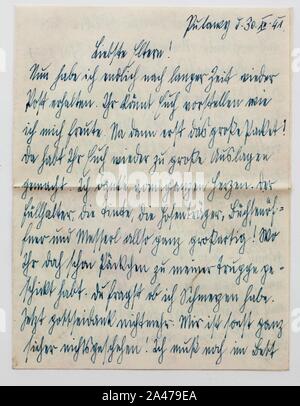 Pulawy d. 30.XI.41
Liebste Eltern!
Nun habe ich endlich nach langer Zeit wieder
Post erhalten. Ihr könnt Euch vorstellen wie
ich mich freute. Na dann erst das große Paket!
Da habt Ihr Euch wieder zu große Auslagen
gemacht. Ich danke vom ganzen Herzen. der
Füllhalter, die Tinte, die Hosenträger, Büchsenöf-
fner und Messerl allso ganz großartig! Wo
Ihr doch schon Päckchen zu meiner Truppe ge-
schickt habt. Du fragst ob ich Schmerzen habe.
Jetzt gottseidank nichtmehr. Mir ist sonst ganz
sicher nichts geschehen! Ich muß noch im Bett
alamy
Image ID: 2A479EA
www.alamy.com